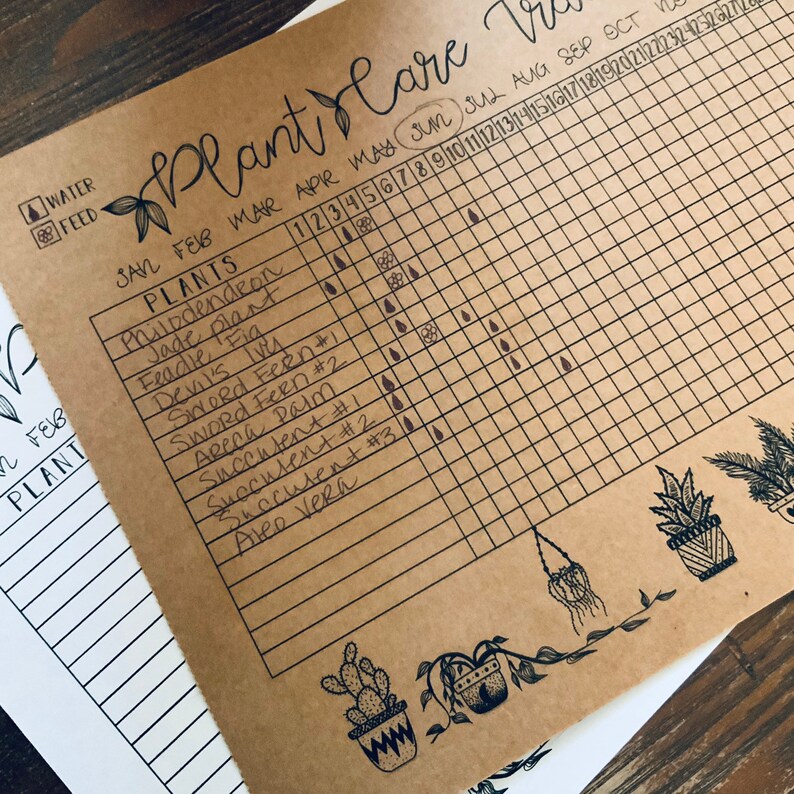 Plant Care Tra
WATER
FEED
JAN FEB MAR APR MAY JUN JUL AUG SEP OCT
PLANTS 1 2 3 4 5 6 7 8 9 10 11 12 13 14 15 16 17 18 19 20 21 22 23 24 25 26 27
Philodendron
Jade plant
Feadle Fig
Devil's Ivy
Sword Fern #1
Sword Fern #2
Areca Palm
Succulent #1
Succulent #2
Succulent #3
Aleo Vera
FEB
PLANT